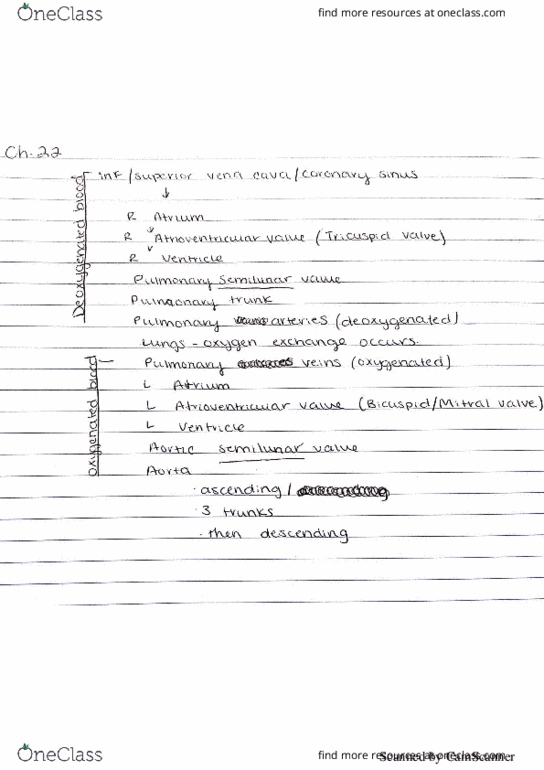 OneClass
find more resources at oneclass.com
Ch. 22
Deoxygenated blood
inf/superior vena cava/coronary sinus
↓
R Atrium
R Atrioventricular valve (Tricuspid valve)
R Ventricle
Pulmonary semilunar valve
Pulmonary trunk
Pulmonary arteries (deoxygenated)
Lungs - oxygen exchange occurs.
oxygenated blood
Pulmonary veins (oxygenated)
L Atrium
L Atrioventricular valve (Bicuspid/Mitral valve)
L Ventricle
Aortic semilunar valve
Aorta
· ascending /
· 3 trunks
· then descending
OneClass
find more resources at oneclass.com
Scanned by CamScanner